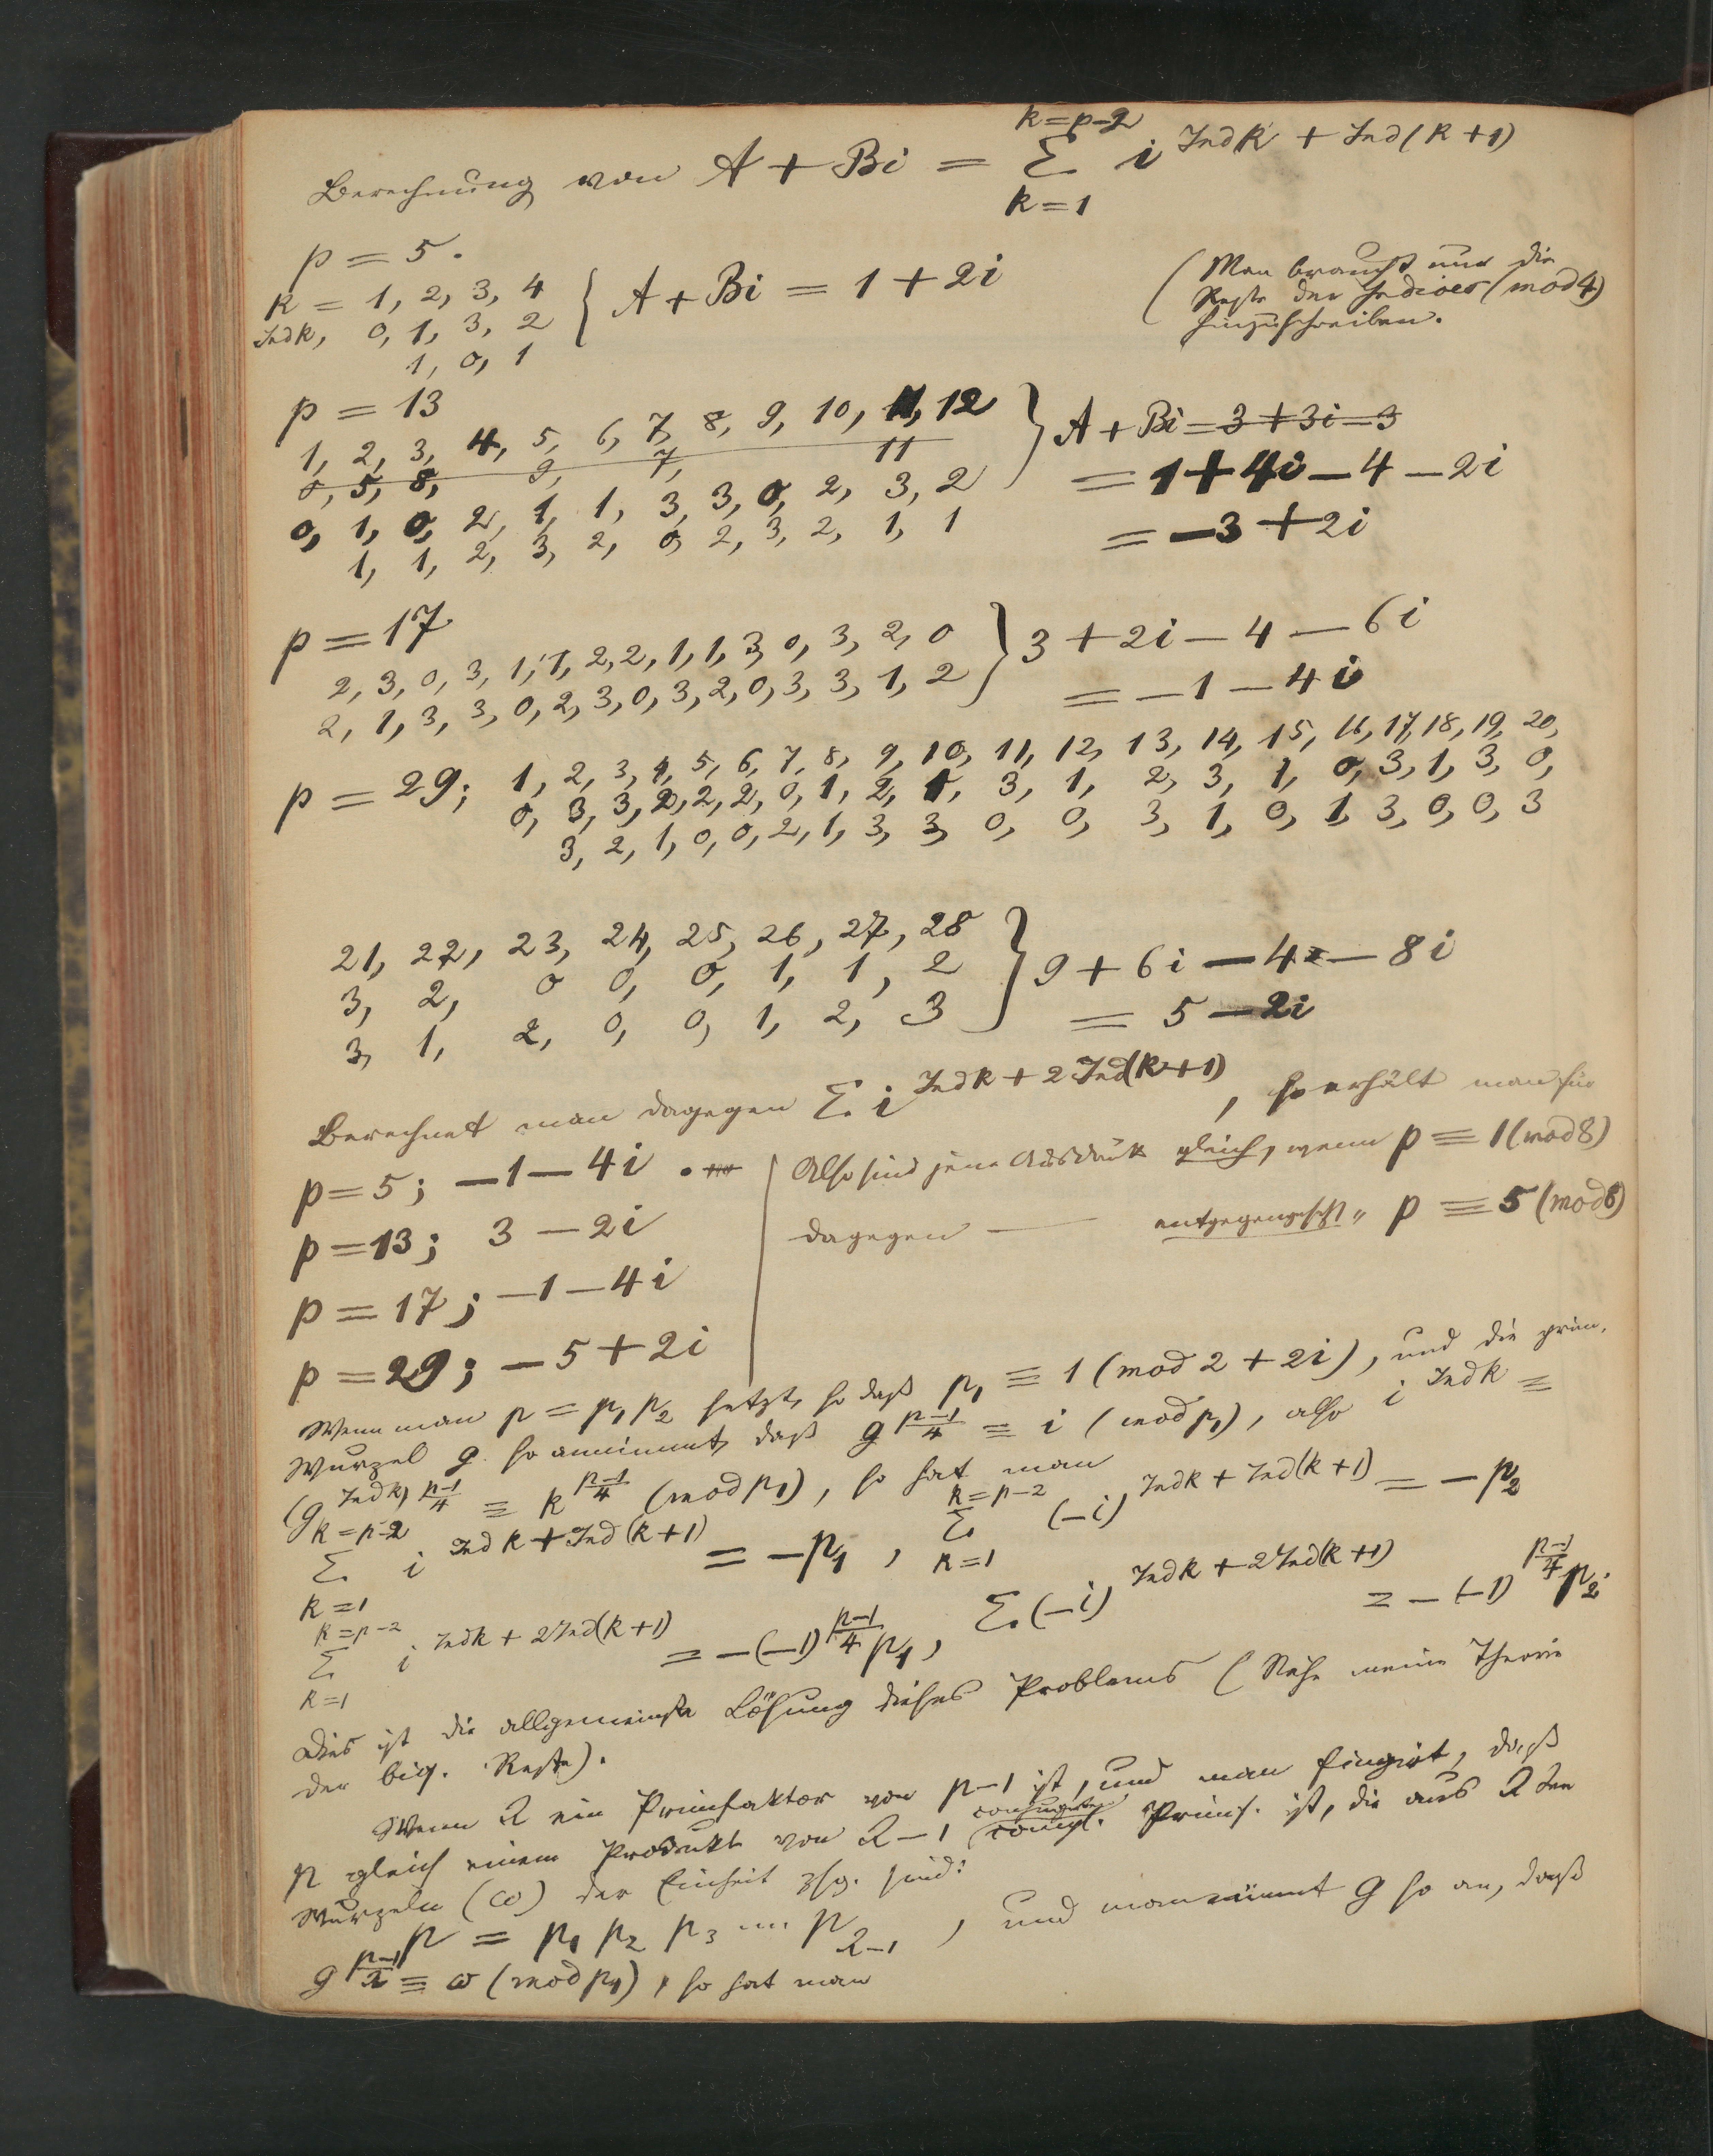 Berechnung von A + Bi = Σ_{k=1}^{k=p-2} i^{Ind k + Ind(k+1)}
p = 5.
k = 1, 2, 3, 4 { A + Bi = 1 + 2i
Ind k, 0, 1, 3, 2
1, 0, 1
(Man braucht nur die
Reste der Indices (mod 4)
hinzuschreiben.
p = 13
1, 2, 3, 4, 5, 6, 7, 8, 9, 10, 11, 12 } A + Bi = 3 + 3i - 3
0, 5, 8, 9, 7, 11
0, 1, 0, 2, 1, 1, 3, 3, 0, 2, 3, 2 = 1 + 4i - 4 - 2i
1, 1, 2, 3, 2, 0, 2, 3, 2, 1, 1 = -3 + 2i
p = 17
2, 3, 0, 3, 1, 1, 2, 2, 1, 1, 3, 0, 3, 2, 0 } 3 + 2i - 4 - 6i
2, 1, 3, 3, 0, 2, 3, 0, 3, 2, 0, 3, 3, 1, 2 = -1 - 4i
p = 29; 1, 2, 3, 4, 5, 6, 7, 8, 9, 10, 11, 12, 13, 14, 15, 16, 17, 18, 19, 20,
0, 3, 3, 2, 2, 2, 0, 1, 2, 1, 3, 1, 2, 3, 1, 0, 3, 1, 3, 0,
3, 2, 1, 0, 0, 2, 1, 3, 3, 0, 0, 3, 1, 0, 1, 3, 0, 0, 3
21, 22, 23, 24, 25, 26, 27, 28
3, 2, 0 0, 0, 1, 1, 2 } 9 + 6i - 4 - 8i
3, 1, 2, 0, 0, 1, 2, 3 = 5 - 2i
Berechnet man dagegen Σ i^{Ind k + 2 Ind(k+1)}, so erhält man für
p = 5; -1 - 4i .
p = 13; 3 - 2i
p = 17; -1 - 4i
p = 29; -5 + 2i
Also sind jene Ausdrück gleich, wenn p ≡ 1 (mod 8)
dagegen — entgegengesetzt " p ≡ 5 (mod 8)
Wenn man p = p₁p₂ setzt, so daß p₁ ≡ 1 (mod 2 + 2i), und die prim.
Wurzel g so annimmt, daß g^{(p-1)/4} ≡ i (mod p₁), also i^{Ind k} ≡
(g^{Ind k})^{(p-1)/4} ≡ k^{(p-1)/4} (mod p₁), so hat man
Σ_{k=1}^{k=p-2} i^{Ind k + Ind(k+1)} = -p₁, Σ_{k=1}^{k=p-2} (-i)^{Ind k + Ind(k+1)} = -p₂
Σ_{k=1}^{k=p-2} i^{Ind k + 2 Ind(k+1)} = -(-1)^{(p-1)/4} p₁, Σ (-i)^{Ind k + 2 Ind(k+1)} = -(-1)^{(p-1)/4} p₂.
Dies ist die allgemeinste Lösung dieses Problems (Siehe meine Theorie
der biq. Reste).
Wenn λ ein Primfaktor von p-1 ist, und man fingirt, daß
p gleich einem Produkte von λ-1 conjugirten compl. Primf. ist, die aus λten
Wurzeln (ω) der Einheit zsg. sind:
p = p₁ p₂ p₃ .... p_{λ-1}, und man nimmt g so an, daß
g^{(p-1)/λ} ≡ ω (mod p₁), so hat man